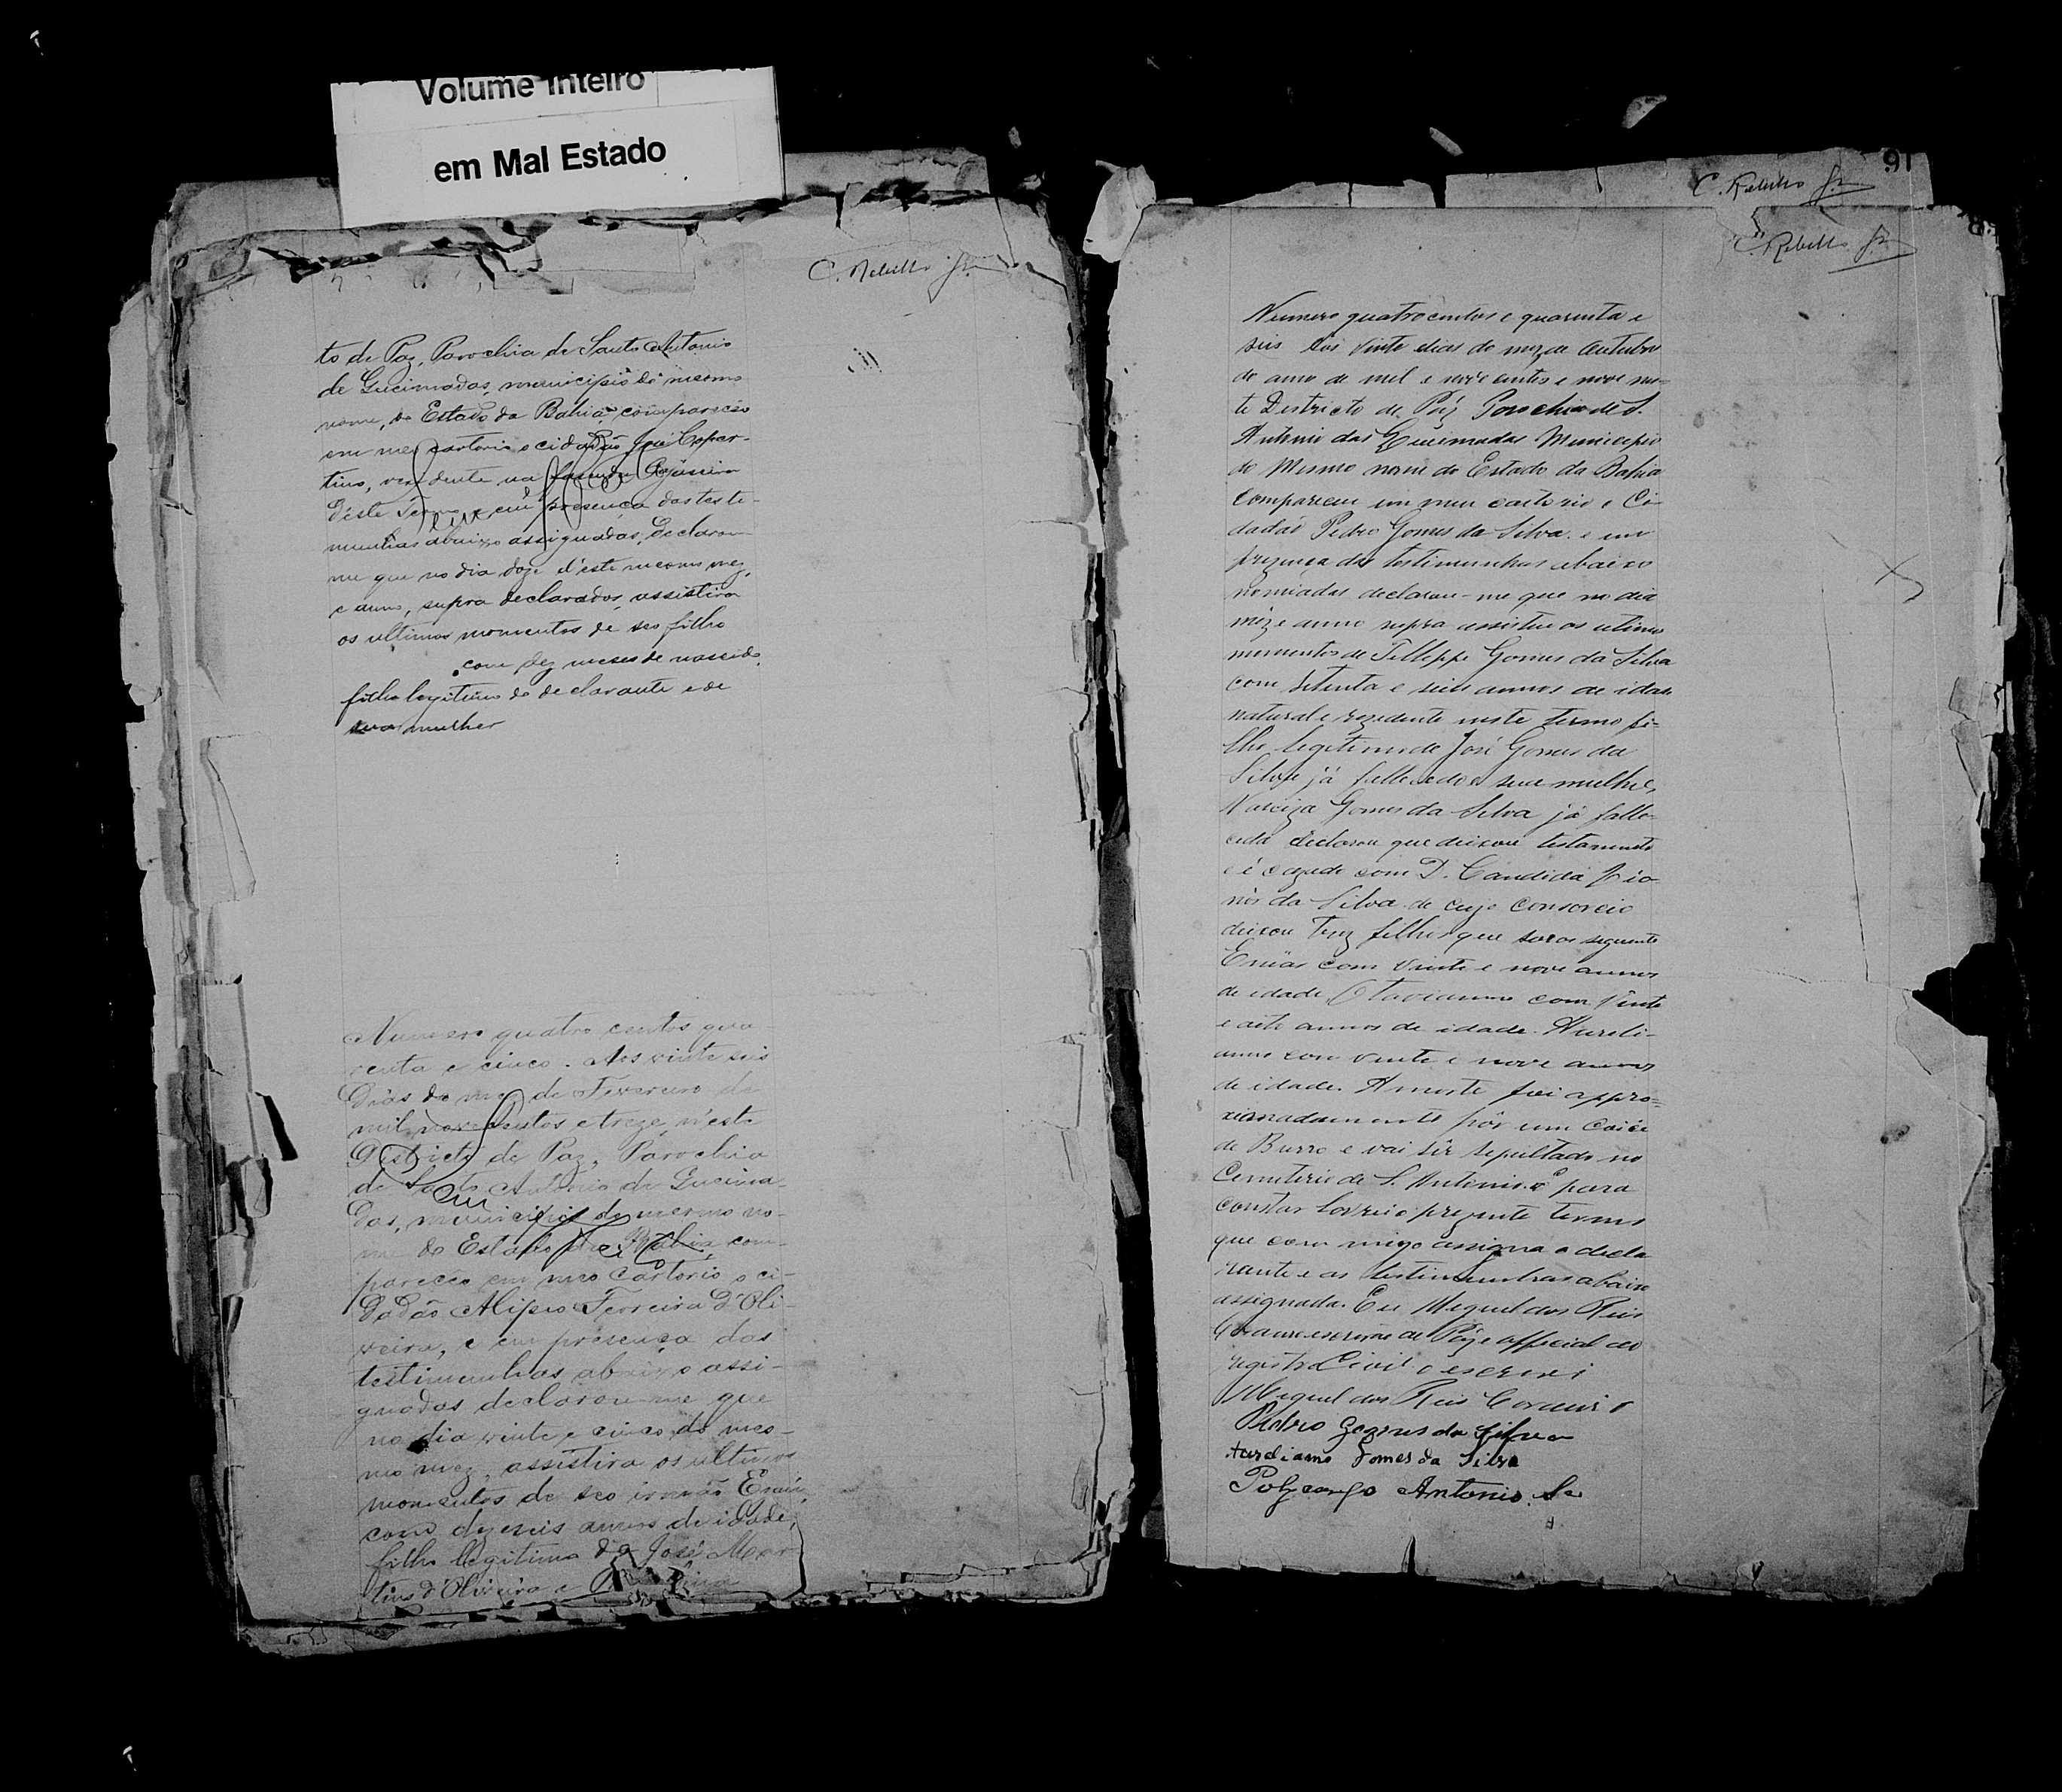 Volume Inteiro
em Mal Estado
C. Rebello Jr.
to de Paz, Parochia de Santo Antonio
de Queimadas, municipio do mesmo
nome, do Estado da Bahia, compareceo
em meo cartorio o cidadão José Coper-
tino, residente na fazenda
d'este Termo e em presença das teste-
munhas abaixo assignadas, declarou-
me que no dia doze d'este mesmo mez,
e anno, supra declarados, assistira
os ultimos momentos de seo filho
com dez meses de nascido,
filho legitimo do declarante e de
sua mulher
Numero quatro centos qua-
renta e cinco. Aos vinte seis
dias do mez de Fevereiro de
mil novecentos e treze, n'este
Districto de Paz, Parochia
de Santo Antonio de Queima-
das, municipio do mesmo no-
me do Estado da Bahia, com-
pareceo em meo Cartorio o ci-
dadão Alipio Ferreira d'Oli-
veira, e em presença das
testimunhas abaixo assi-
gnadas declarou-me que
no dia vinte e cinco do mes-
mo mez, assistira os ultimos
momentos de seo irmão
com dezeseis annos de idade,
filho legitimo de José Mar-
tins d'Oliveira e
91
C. Rebello Jr.
C. Rebello Jr.
Numero quatrocentos e quarenta e
seis Aos vinte dias do mez de Outubro
do anno de mil e novecentos e nove nes-
te Districto de Paz Parochia de S.
Antonio das Queimadas Municipio
do Mesmo nome do Estado da Bahia
compareceu em meu cartorio o Ci-
dadão Pedro Gomes da Silva. e em
prezença das testimunhas abaixo
nomiadas declarou-me que no dia
mêz e anno supra assistiu os utimos
momentos de Fellippe Gomes da Silva
com setenta e seis annos de idade
natural e rezedente neste termo fi-
lho legitimo de José Gomes da
Silva já fallecedo e sua mulher,
Narciza Gomes da Silva já falle-
cida declarou que deixou testamento
e é cazado com D. Candida
da Silva de cujo consorcio
deixou Trez filhos que são os seguente
Enéas com vinte e nove annos
de idade, Otavianno com vinte
e oito annos de idade. Aureli-
anno com vinte e nove annos
de idade. A morte foi appro-
ximadamente pôr um coice
de Burro e vai sêr sepultado no
Cemiterio de S. Antonio. E para
constar lavrei o prezente termo
que com migo assigna o decla
rante e as testimunhas abaixo
assignada. Eu Miguel dos Reis
escrivão de Paz e official do
registro Civil o escrevi
Miguel dos Reis
Pedro Gomes da Silva
Aureliano Gomes da Silva
Polycarpo Antonio